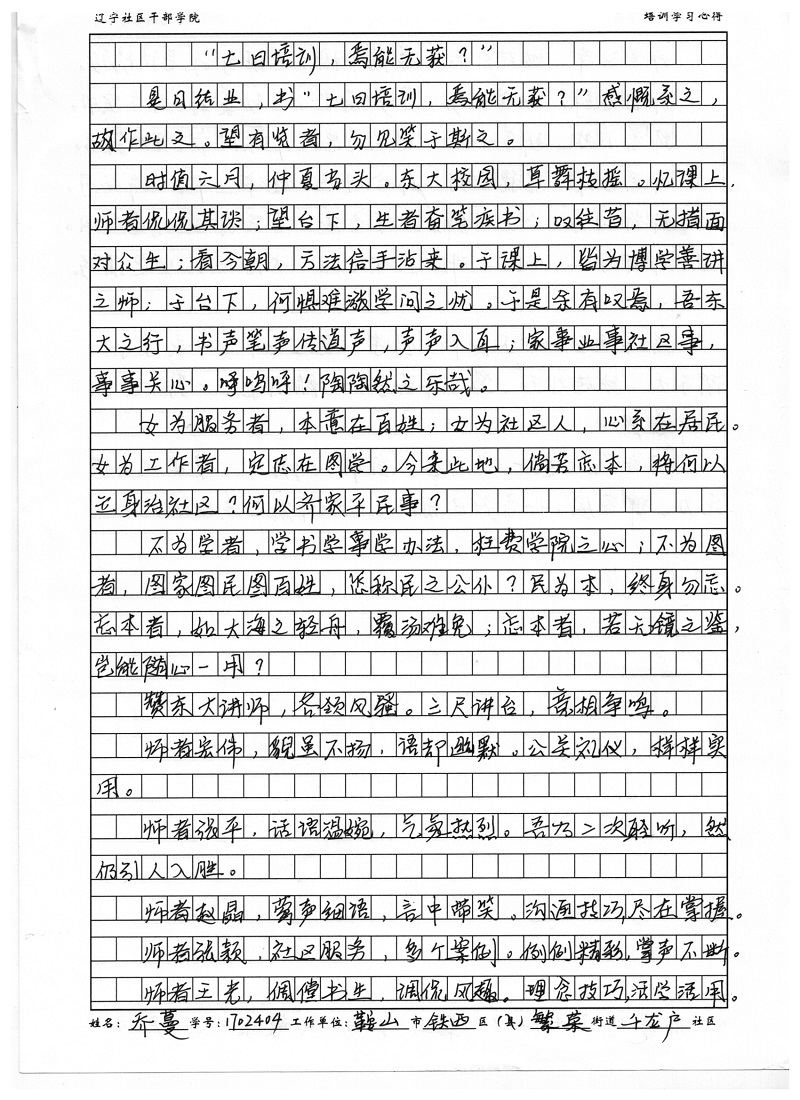 辽宁社区干部学院 培训学习心得
“七日培训，焉能无获？”
是日结业，书“七日培训，焉能无获？”感慨系之，
故作此文。望有览者，勿见笑于斯文。
时值六月，仲夏当头。东大校园，草舞枝摇。忆课上，
师者侃侃其谈；望台下，生者奋笔疾书；叹往昔，无措面
对众生；看今朝，方法信手沾来。于课上，皆为博学善讲
之师；于台下，何惧难涨学问之忧。于是余有叹焉，吾东
大之行，书声笔声传道声，声声入耳；家事业事社区事，
事事关心。呼呜呼！陶陶然之乐哉。
女为服务者，本意在百姓；女为社区人，心系在居民。
女为工作者，定志在图学。今来此地，倘若忘本，将何以
立身治社区？何以齐家平民事？
不为学者，学书学事学办法，枉费学院之心；不为图
者，图家图民图百姓，怎称民之公仆？民为本，终身勿忘。
忘本者，如大海之轻舟，覆汤难免；忘本者，若无镜之鉴，
岂能随心一用？
赞东大讲师，各领风骚。三尺讲台，竞相争鸣。
师者宏伟，貌虽不扬，语却幽默。公关礼仪，样样实
用。
师者张平，话语温婉，气氛热烈。吾为二次聆听，然
仍引人入胜。
师者赵晶，莺声细语，言中带笑，沟通技巧，尽在掌握。
师者张颖，社区服务，多个案例。例例精彩，掌声不断。
师者王老，倜傥书生，调侃风趣。理念技巧，活学活用。
姓名：乔蔓 学号：1702404 工作单位：鞍山 市 铁西 区（县） 繁荣 街道 千龙户 社区